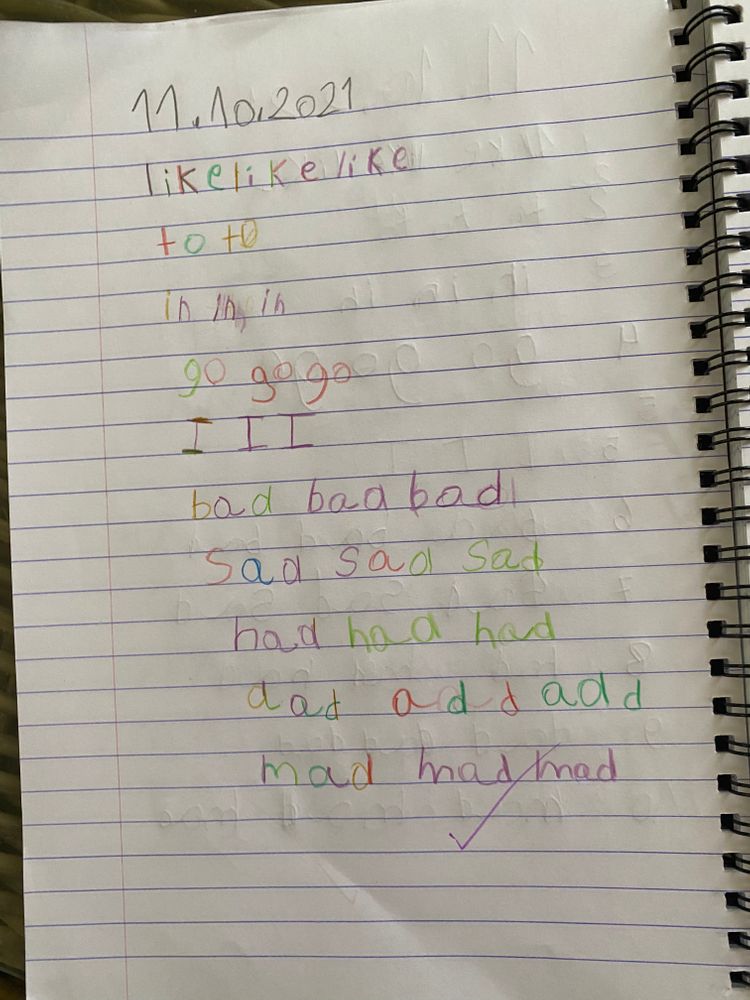 11.10.2021
likelikelike
to to
in in, in
go go go
I I I
bad bad bad
sad sad sad
had had had
dad add add
mad mad mad